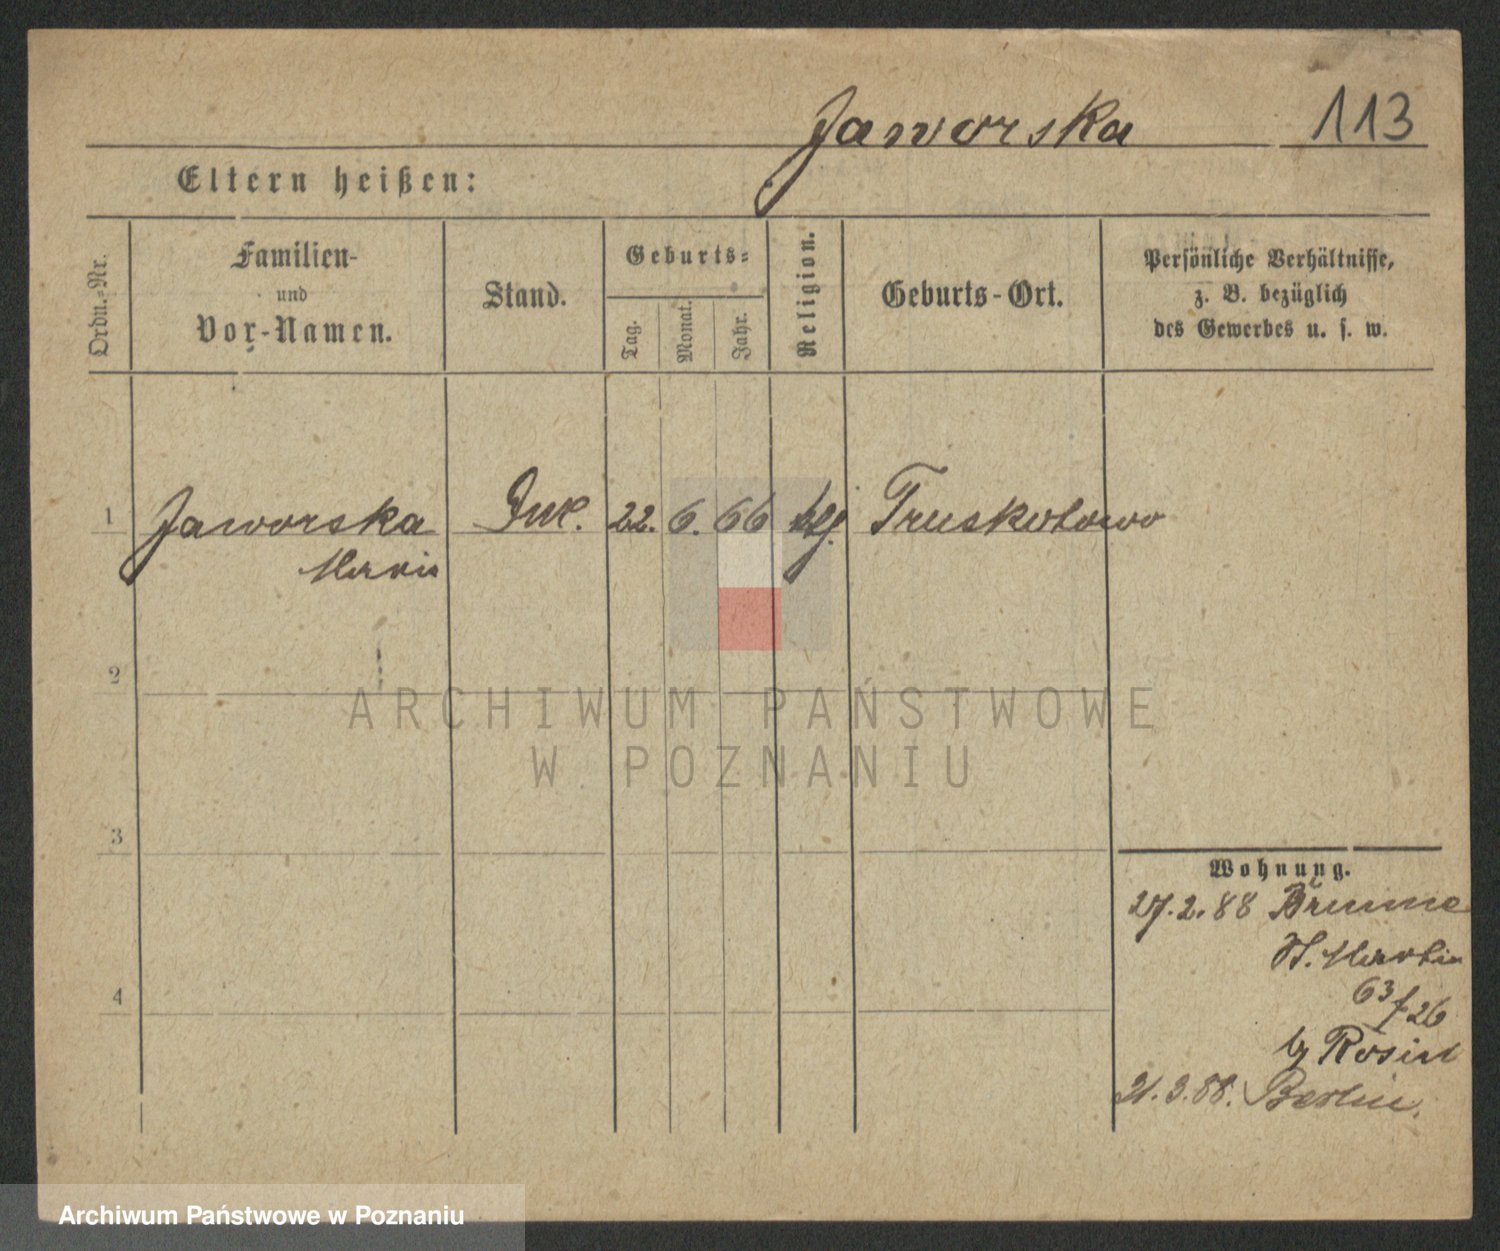 Jaworska 113
Eltern heißen:
Ordn.-Nr.
Familien-
und
Vor-Namen.
Stand.
Geburts-
Tag.
Monat.
Jahr.
Religion.
Geburts-Ort.
Persönliche Verhältnisse,
z. B. bezüglich
des Gewerbes u. s. w.
1 Jaworska 22. 6. 66 Truskotowo
Maria
2
3
4
ARCHIWUM PAŃSTWOWE
W POZNANIU
Wohnung.
27.2.88
St. Martin
63/26
21.3.88. Berlin.
Archiwum Państwowe w Poznaniu